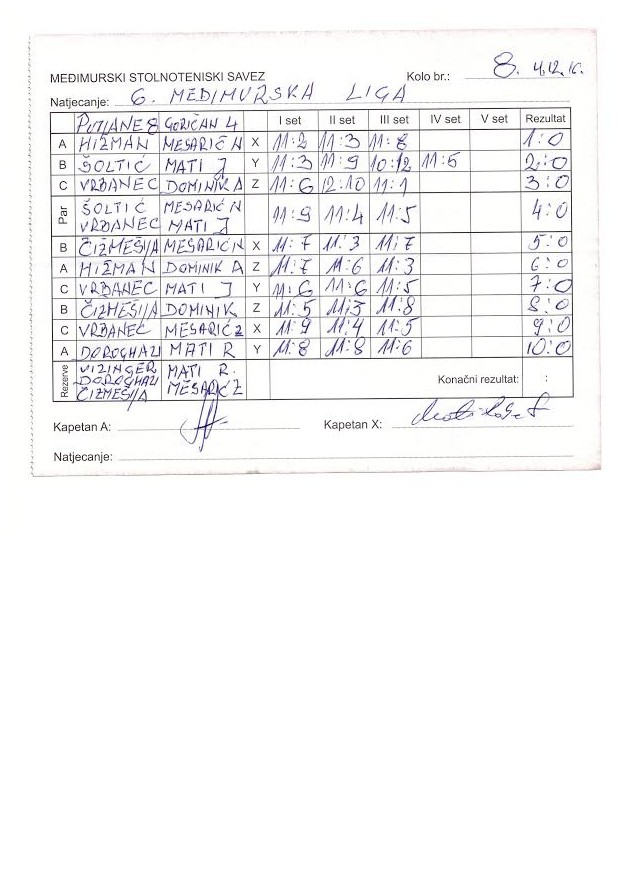 MEĐIMURSKI STOLNOTENISKI SAVEZ Kolo br.: 8. 4.12.16.
Natjecanje: 6. MEĐIMURSKA LIGA
GORIČAN 4 I set II set III set IV set V set Rezultat
A HIŽMAN MESARIĆ N X 11:2 11:3 11:8 1:0
B ŠOLTIĆ MATI J Y 11:3 11:9 10:12 11:5 2:0
C VRBANEC DOMINIK A Z 11:6 12:10 11:1 3:0
Par ŠOLTIĆ MESARIĆ N 11:9 11:4 11:5 4:0
VRBANEC MATI J
B ČIZMEŠIJA MESARIĆ N X 11:7 11:3 11:7 5:0
A HIŽMAN DOMINIK A Z 11:7 11:6 11:3 6:0
C VRBANEC MATI J Y 11:6 11:6 11:5 7:0
B ČIZMEŠIJA DOMINIK Z 11:5 11:3 11:8 8:0
C VRBANEC MESARIĆ Z X 11:9 11:4 11:5 9:0
A DOROGHAZI MATI R Y 11:8 11:8 11:6 10:0
Rezerve VIZINGER MATI R. Konačni rezultat: :
DOROGHAZI MESARIĆ Z
ČIZMEŠIJA
Kapetan A: Kapetan X:
Natjecanje: